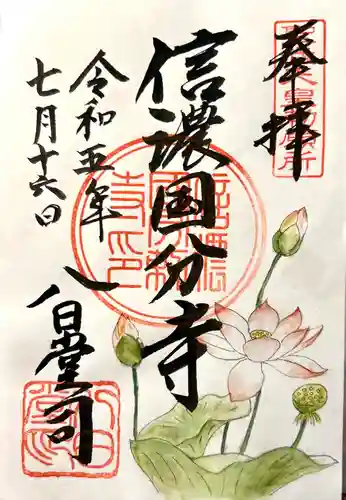 奉拝
信濃国分寺
令和五年
七月十六日
八日堂司